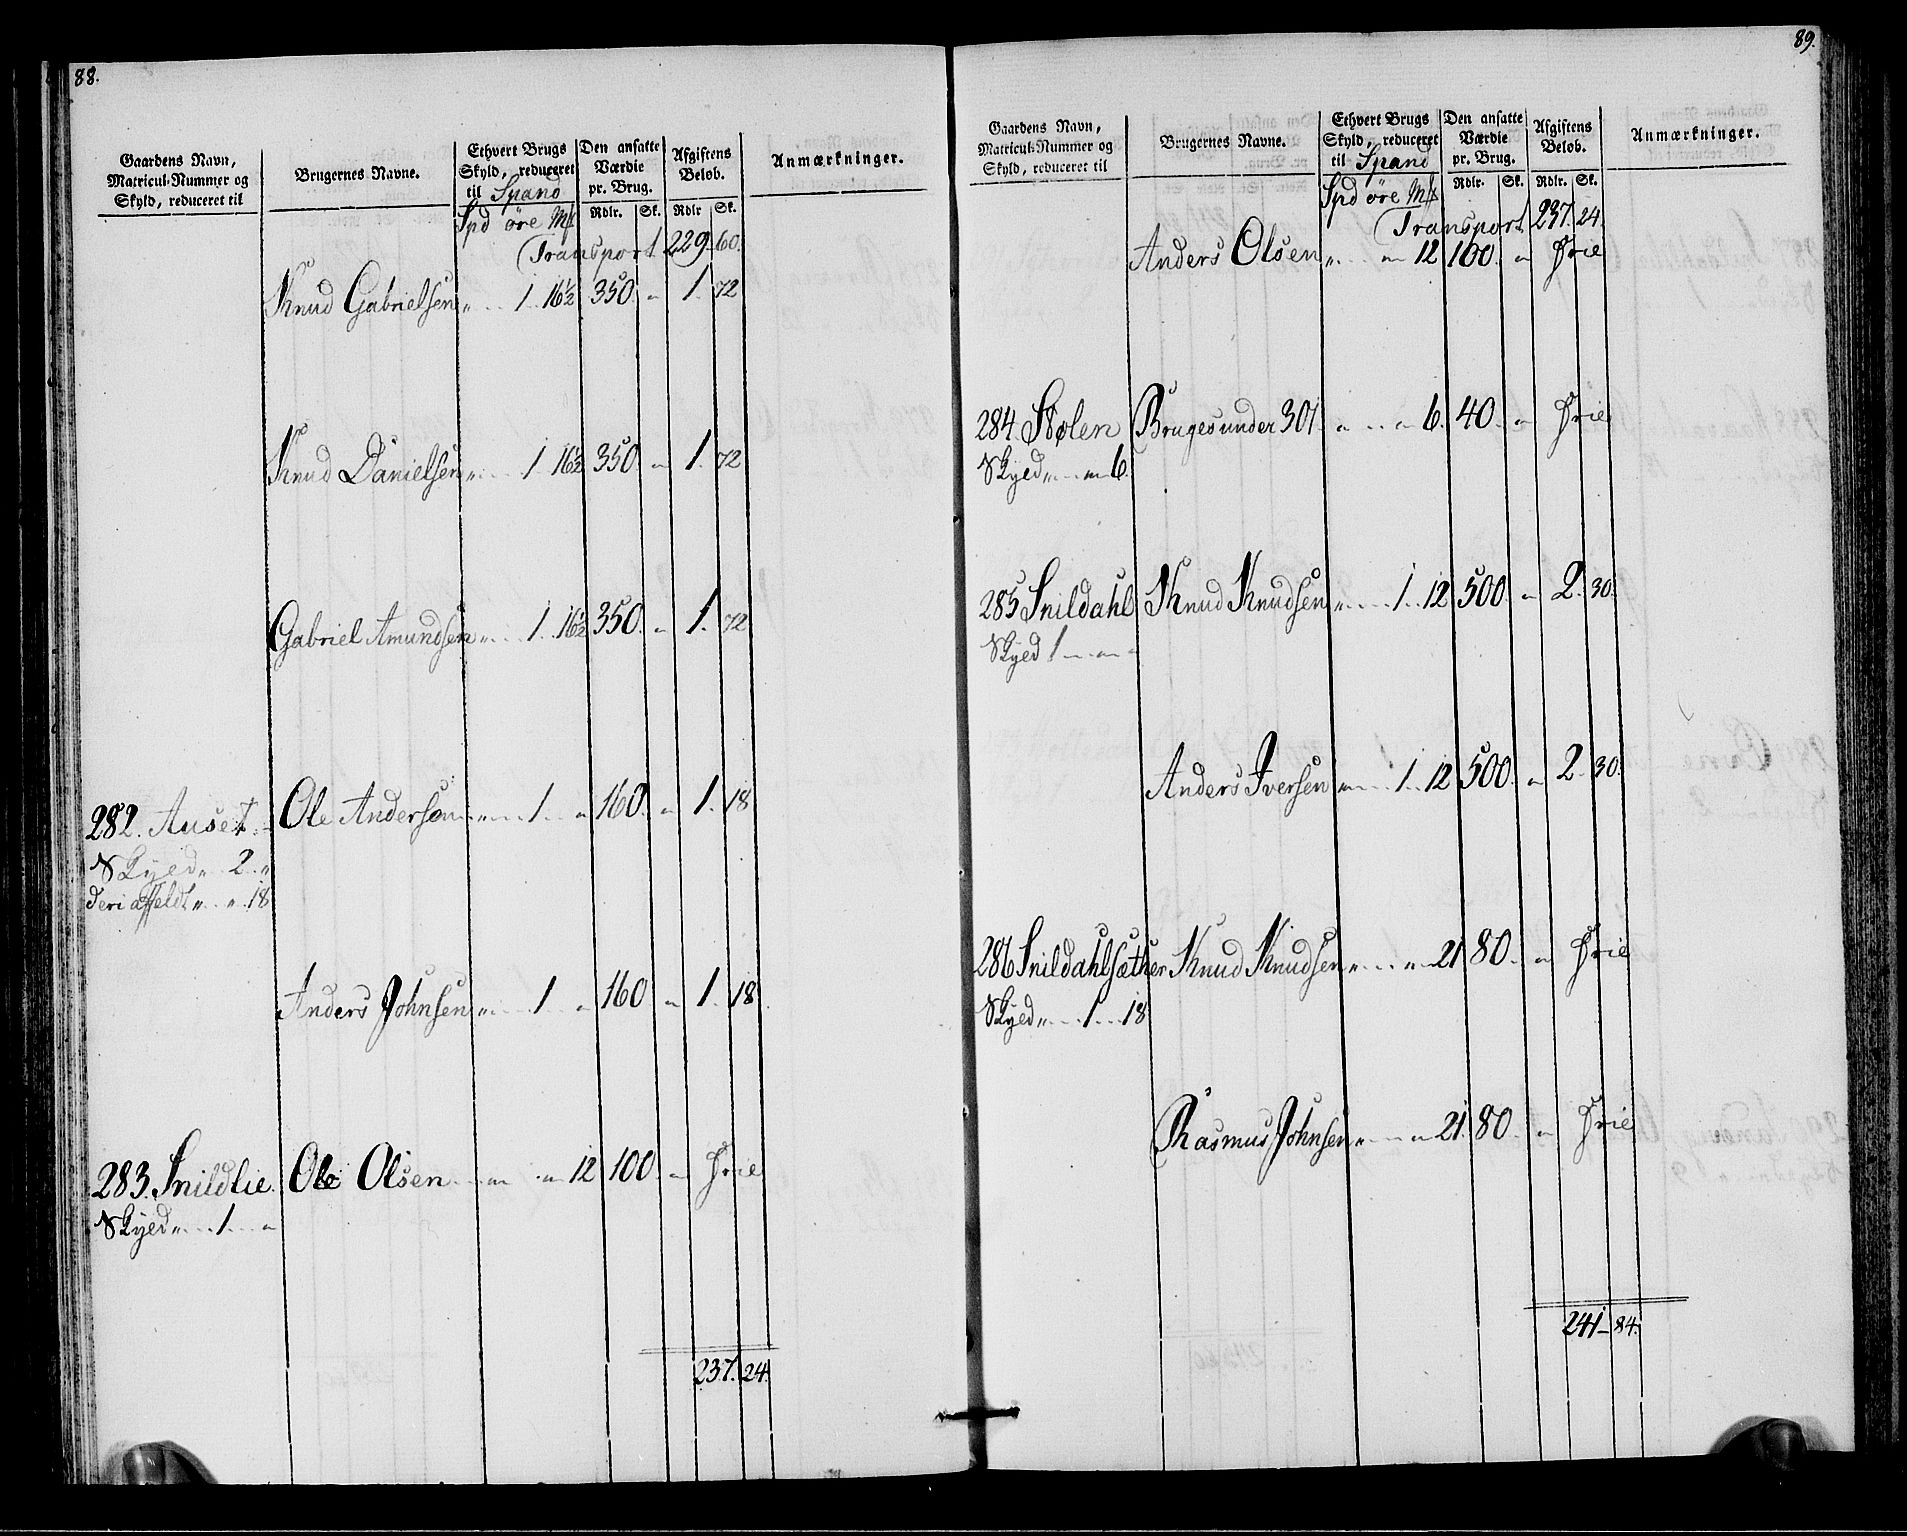 88.
Gaardens Navn, Matricul-Nummer og Skyld, reduceret til | Brugernes Navne. | Ethvert Brugs Skyld, reduceret til Spand | Den ansatte Værdie pr. Brug. | Afgiftens Beløb. | Anmærkninger.
Spd øre Mk | Rdlr. | Sk. | Rdlr | Sk.
Transport 229. 60.
Knud Gabrielsen " 1 16½ 350. " 1. 72
Knud Danielsen " 1 16½ 350 " 1. 72
Gabriel Amundsen " 1 16½ 350. " 1. 72
282. Auset Ole Anderson " 1 " 160. " 1. 18
Skyed " 2 "
deri affeldt " " 18
Anders Johnsen " 1 " 160 " 1. 18
283. Snildlie. Ole Olsen " " 12 100. " Frie
Skyed " 1 "
237. 24.
89.
Gaardens Navn, Matricul-Nummer og Skyld, reduceret til | Brugernes Navne. | Ethvert Brugs Skyld, reduceret til Spand | Den ansatte Værdie pr. Brug. | Afgiftens Beløb. | Anmærkninger.
Spd øre Mk | Rdlr. | Sk. | Rdlr. | Sk.
Transport 237. 24.
Anders Olsen " " 12 100. " Frie
284. Stølen Bruges under 301. " " 6. 40. " Frie
Skyed " " 6.
285 Snildahl Knud Knudsen " 1 12 500 " 2. 30.
Skyed 1 " "
Anders Iversen " 1 12 500. " 2. 30.
286 Snildahlsæther Knud Knudsen " " 21 80. " Frie
Skyed " 1 18
Rasmus Johnsen " " 21. 80. " Frie
241 – 84.